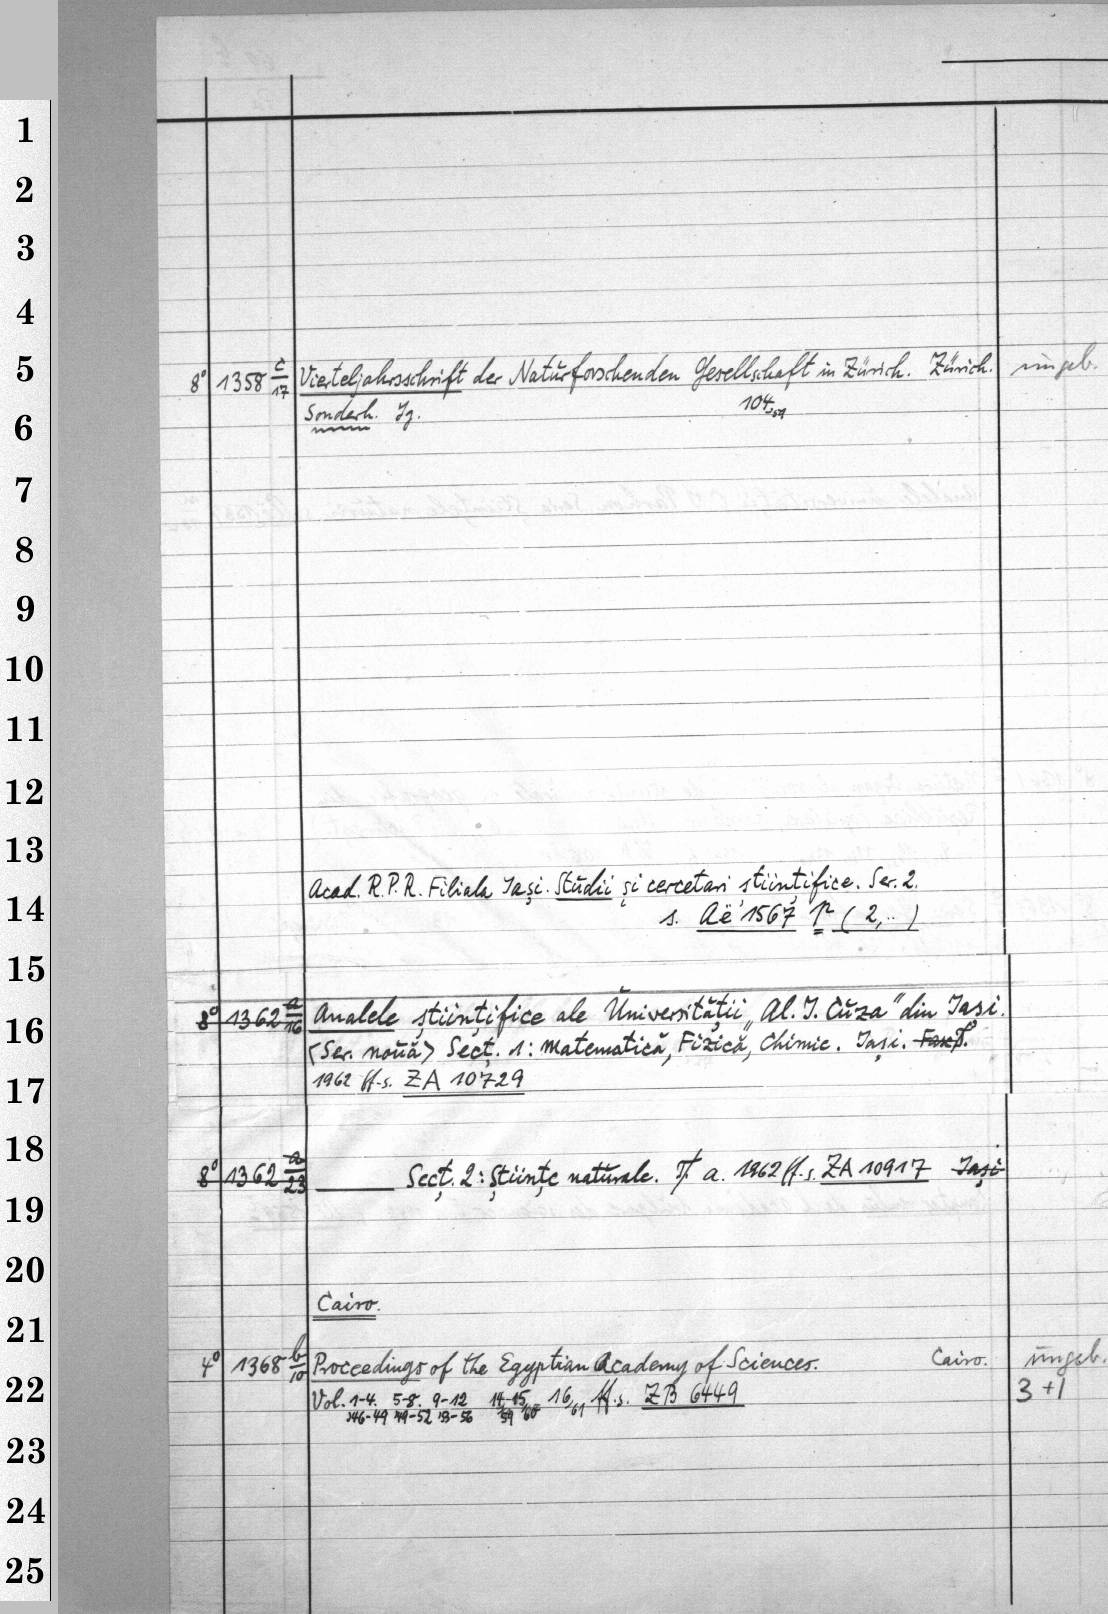 1
2
3
4
5
8° 1358 c/17 Vierteljahrsschrift der Naturforschenden Gesellschaft in Zürich. Zürich. ungeb.
6
Sonderh. Jg. 104,59
7
8
9
10
11
12
13
14
Acad. R.P.R. Filiala Iași. Studii și cercetari stiințifice. Ser. 2.
s. Aë 1567 (2,..)
15
16
8° 1362 a/16 Analele științifice ale Universității „Al. I. Cuza" din Iași.
<Ser. nouă> Secț. 1: Matematică, Fizică, Chimie. Iași.
17
1962 ff. s. ZA 10729
18
19
8° 1362 a/23 ______ Secț. 2: Științe naturale. a. 1962 ff. s. ZA 10917 Iași
20
21
Cairo.
22
4° 1368 b/10 Proceedings of the Egyptian Academy of Sciences. Cairo. ungeb.
Vol. 1-4. 5-8. 9-12 14-15 16/61 ff. s. ZB 6449 3+1
46-49 49-52 53-56 59 60
23
24
25